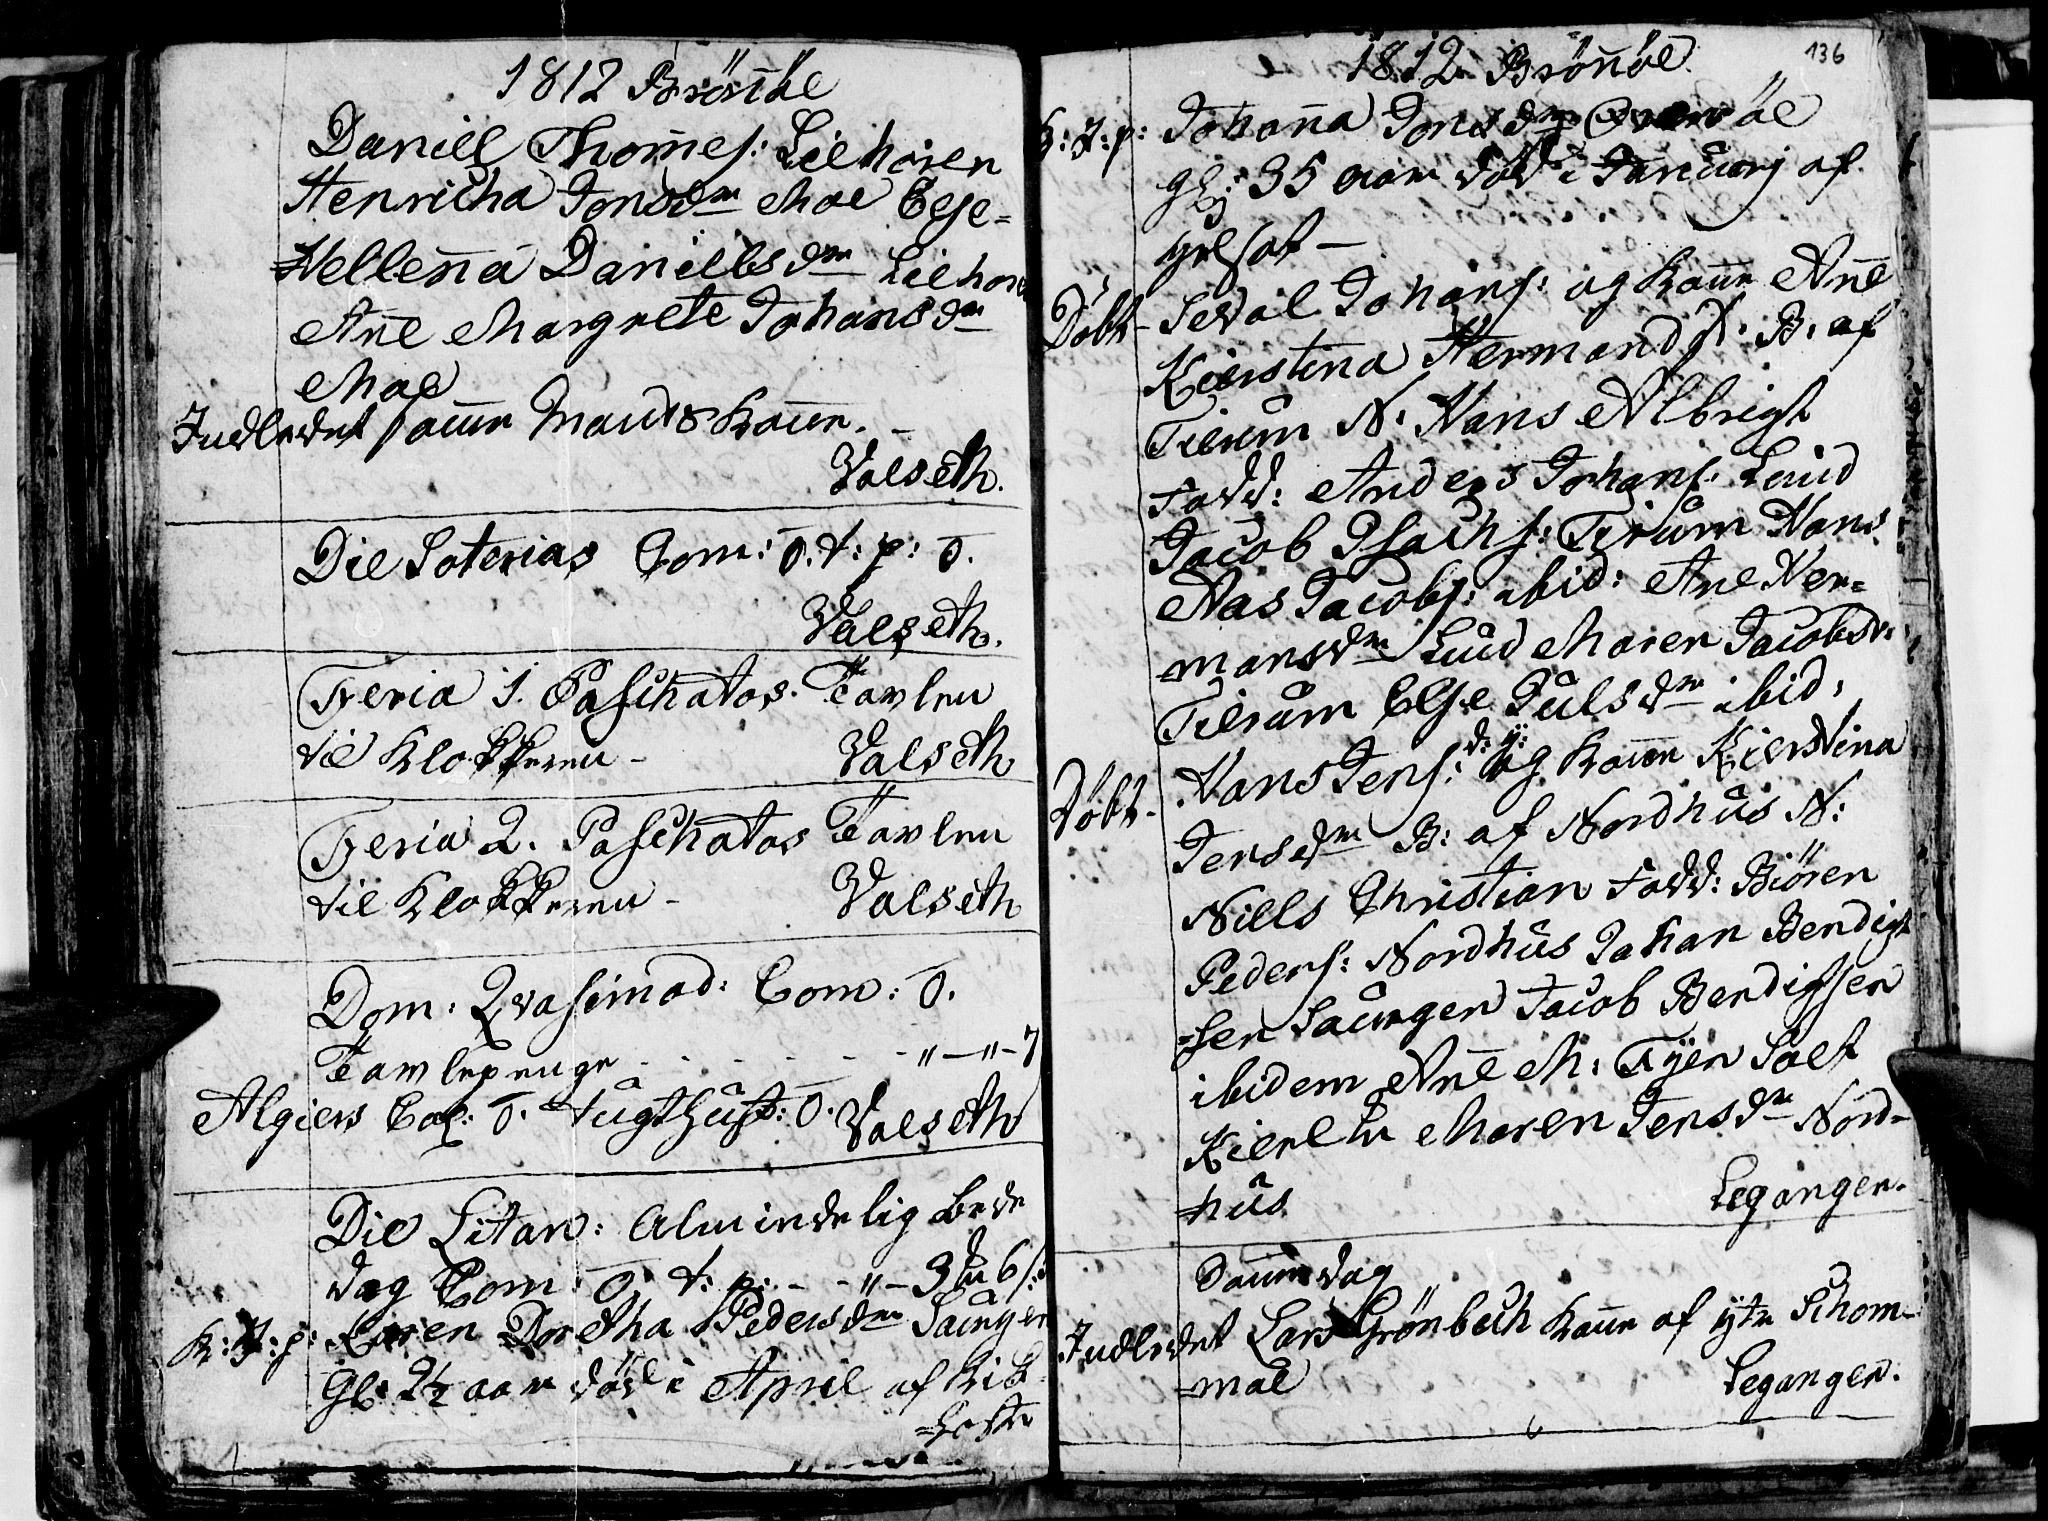 1812 Brönöe
Daniel Thomes: Liehoren
Henricha Jonsdr Moe Else
Hellena Danielsdr Liehoren
Ane Margrete Johansdr
Moe
Indledet samme Mands Kone.
Valseth.
Die Soterias Com: 0. t: p: 0.
Valseth.
Feria 1. Paschatos. Tavlen
til Klokkeren -
Valseth
Feria 2. Paschatos Tavlen
til Klokkeren -
Valseth
Dom: Qvasimod: Com: 0.
Tavlepenge - - - - - - " - " - 7
Algiers Cas: 0. Tugthust: 0. Valseth
Die Litan: Almindelig Bede
dag Com: 0. t: p: - - " - 3 6 s:
K: J: p: Karen Dorethea Pedersdr Saugen
gl: 2½ aar död i April af Kik
=hoste
136
1812 Brönöe
K: J: p: Johanna Jonsdr
gl: 35 aar död i Januarj af
Döbt - Sival Johans: og Kone Ane
Kierstina Hermandsd: B. af
Tilrum N. Hans Albrigt
Fadd: Anders Johans: Lund
Jacob Isachs: Tilrum Hans
Aas Jacobs: ibid: Ane Her=
mansdr Lund Maren Jacobsdr
Tilrum Else Julsdr ibid:
d: y:
Döbt - Hans Jens: og Kone Kierstina
Jensdr B: af Nordhus N:
Niels Christian Fadd: Biören
Peders: Nordhus Johan Bendigt
=sen Saugen Jacob Bendigtsen
ibidem Ane M: Tilrem Salt
Maren Jensdr Nord=
=hus
Legangen.
Samme dag
Indledet Lars Grönbech Kone af ytr Schom=
=moe
Legangen.